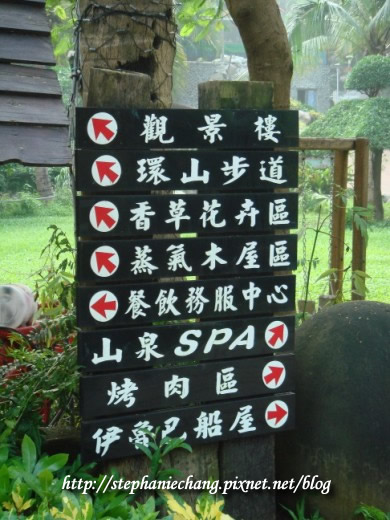 觀景樓
環山步道
香草花卉區
蒸氣木屋區
餐飲務服中心
山泉SPA
烤肉區
伊魯巴船屋
http://stephaniechang.pixnet.net/blog